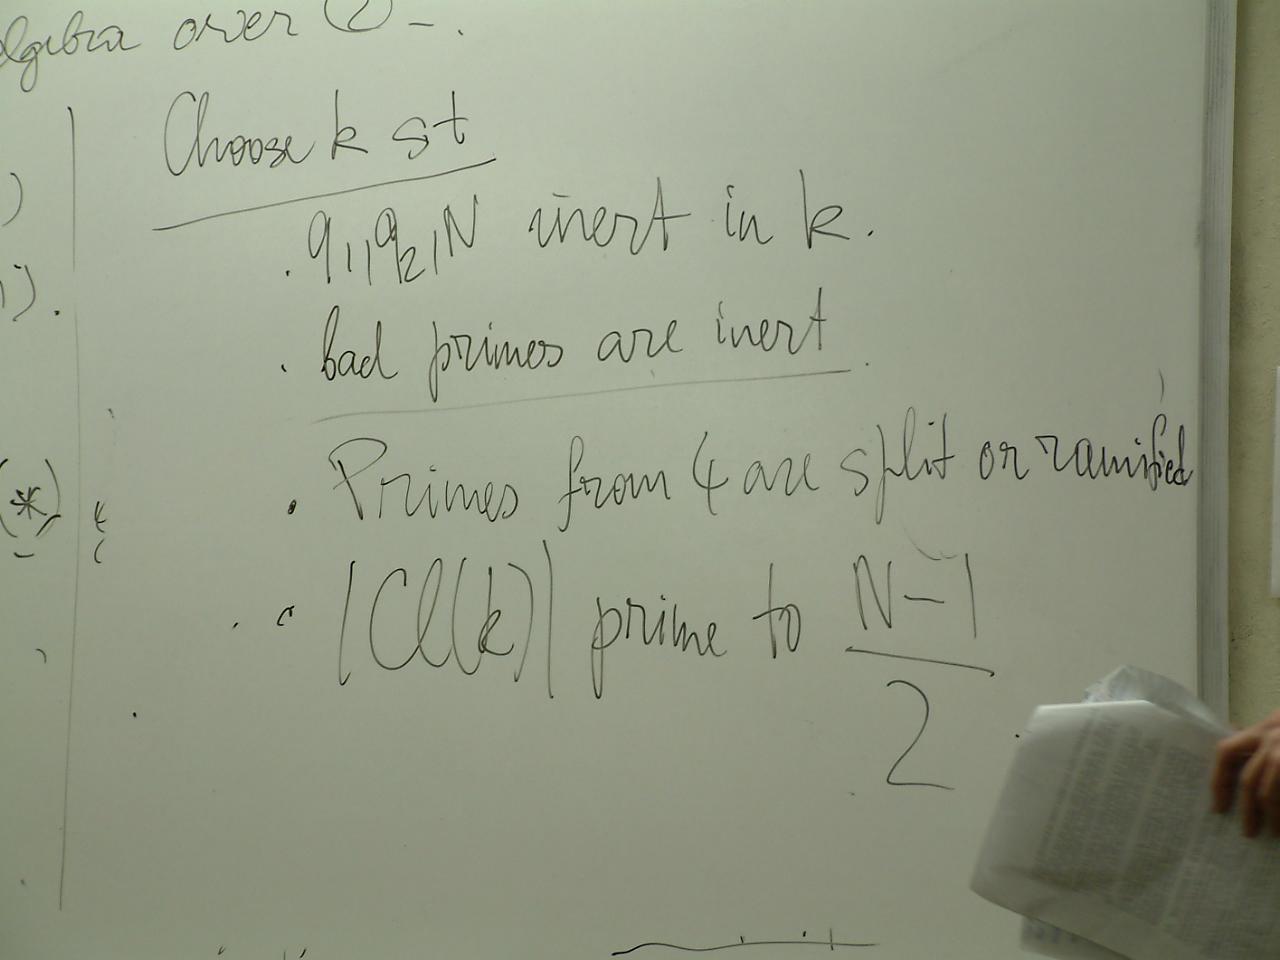 algebra over Q
Choose k st
. q1, q2, N inert in k.
. bad primes are inert.
. Primes from 4 are split or ramified
. |Cl(k)| prime to N-1
2
)
i).
(*)